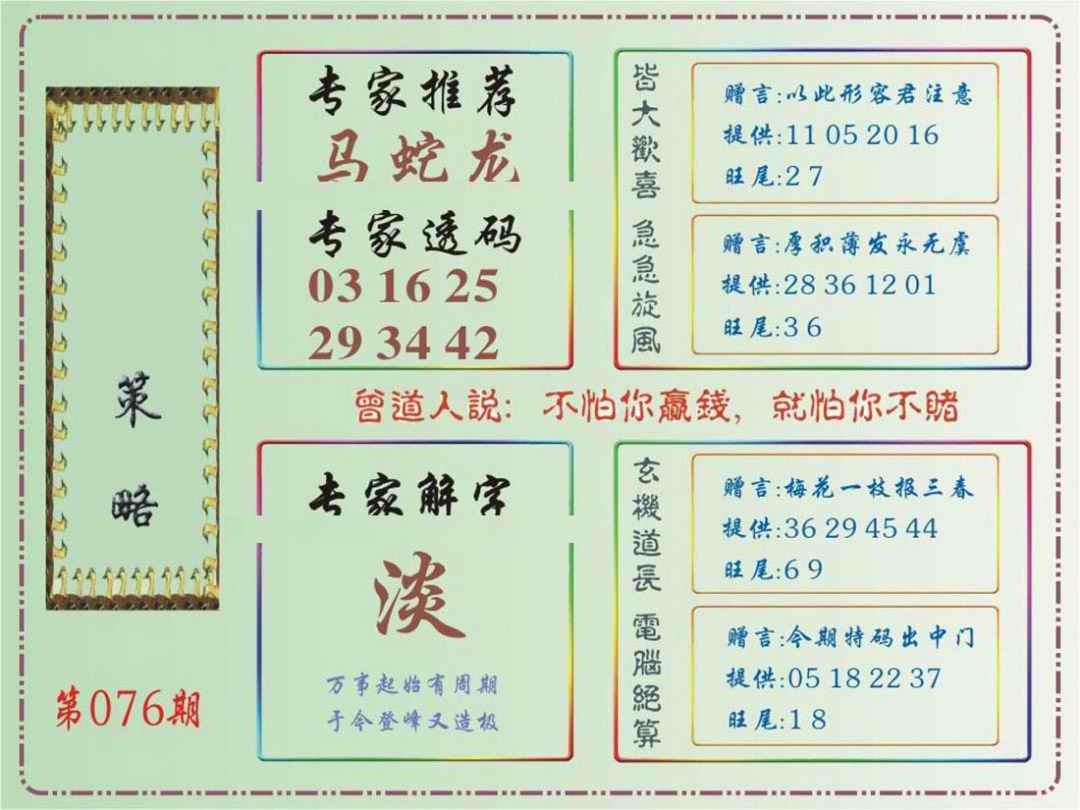 策略
第076期
专家推荐
马蛇龙
专家透码
03 16 25
29 34 42
皆大歡喜
赠言:以此形容君注意
提供:11 05 20 16
旺尾:2 7
急急旋風
赠言:厚积薄发永无虞
提供:28 36 12 01
旺尾:3 6
曾道人説: 不怕你贏錢, 就怕你不賭
专家解字
淡
万事起始有周期
于今登峰又造极
玄機道長
赠言:梅花一枝报三春
提供:36 29 45 44
旺尾:6 9
電腦絕算
赠言:今期特码出中门
提供:05 18 22 37
旺尾:1 8